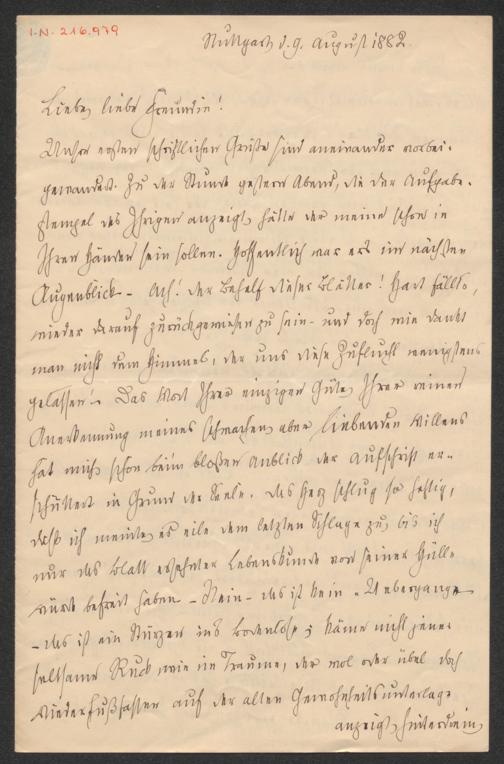 I.N. 216.979
Stuttgart d. 9. August 1882.
Liebe, liebe Freundin!
Unsre ersten schriftlichen Grüße sind aneinander vorbei-
gewandert. Zu der Stunde gestern Abend, die der Aufgabe-
stempel des Ihrigen anzeigt, hätte der meine schon in
Ihren Händen sein sollen. Hoffentlich war er's im nächsten
Augenblick. – Ach! der Behelf dieser Blätter! Hart fällt's,
wieder darauf zurückgewiesen zu sein – und doch wie dankt
man nicht dem Himmel, der uns diese Zuflucht wenigstens
gelassen! – Das Wort Ihrer einzigen Güte, Ihrer reinen
Anerkennung meines schwachen, aber liebenden Willens
hat mich schon beim bloßen Anblick der Aufschrift er-
schüttert in Grund der Seele. Das Herz schlug so heftig,
daß ich meinte, es eile dem letzten Schlage zu, bis ich
nur das Blatt ersehnter Lebenskunde von seiner Hülle
würde befreit haben – Nein – das ist kein "Uebergang"
– das ist ein Stürzen ins Bodenlose; käme nicht jener
seltsame Ruck wie im Traume, der wol oder übel doch
Wiederfußfassen auf der alten Gewohnheitsunterlage
anzeigt, hinterdrein,